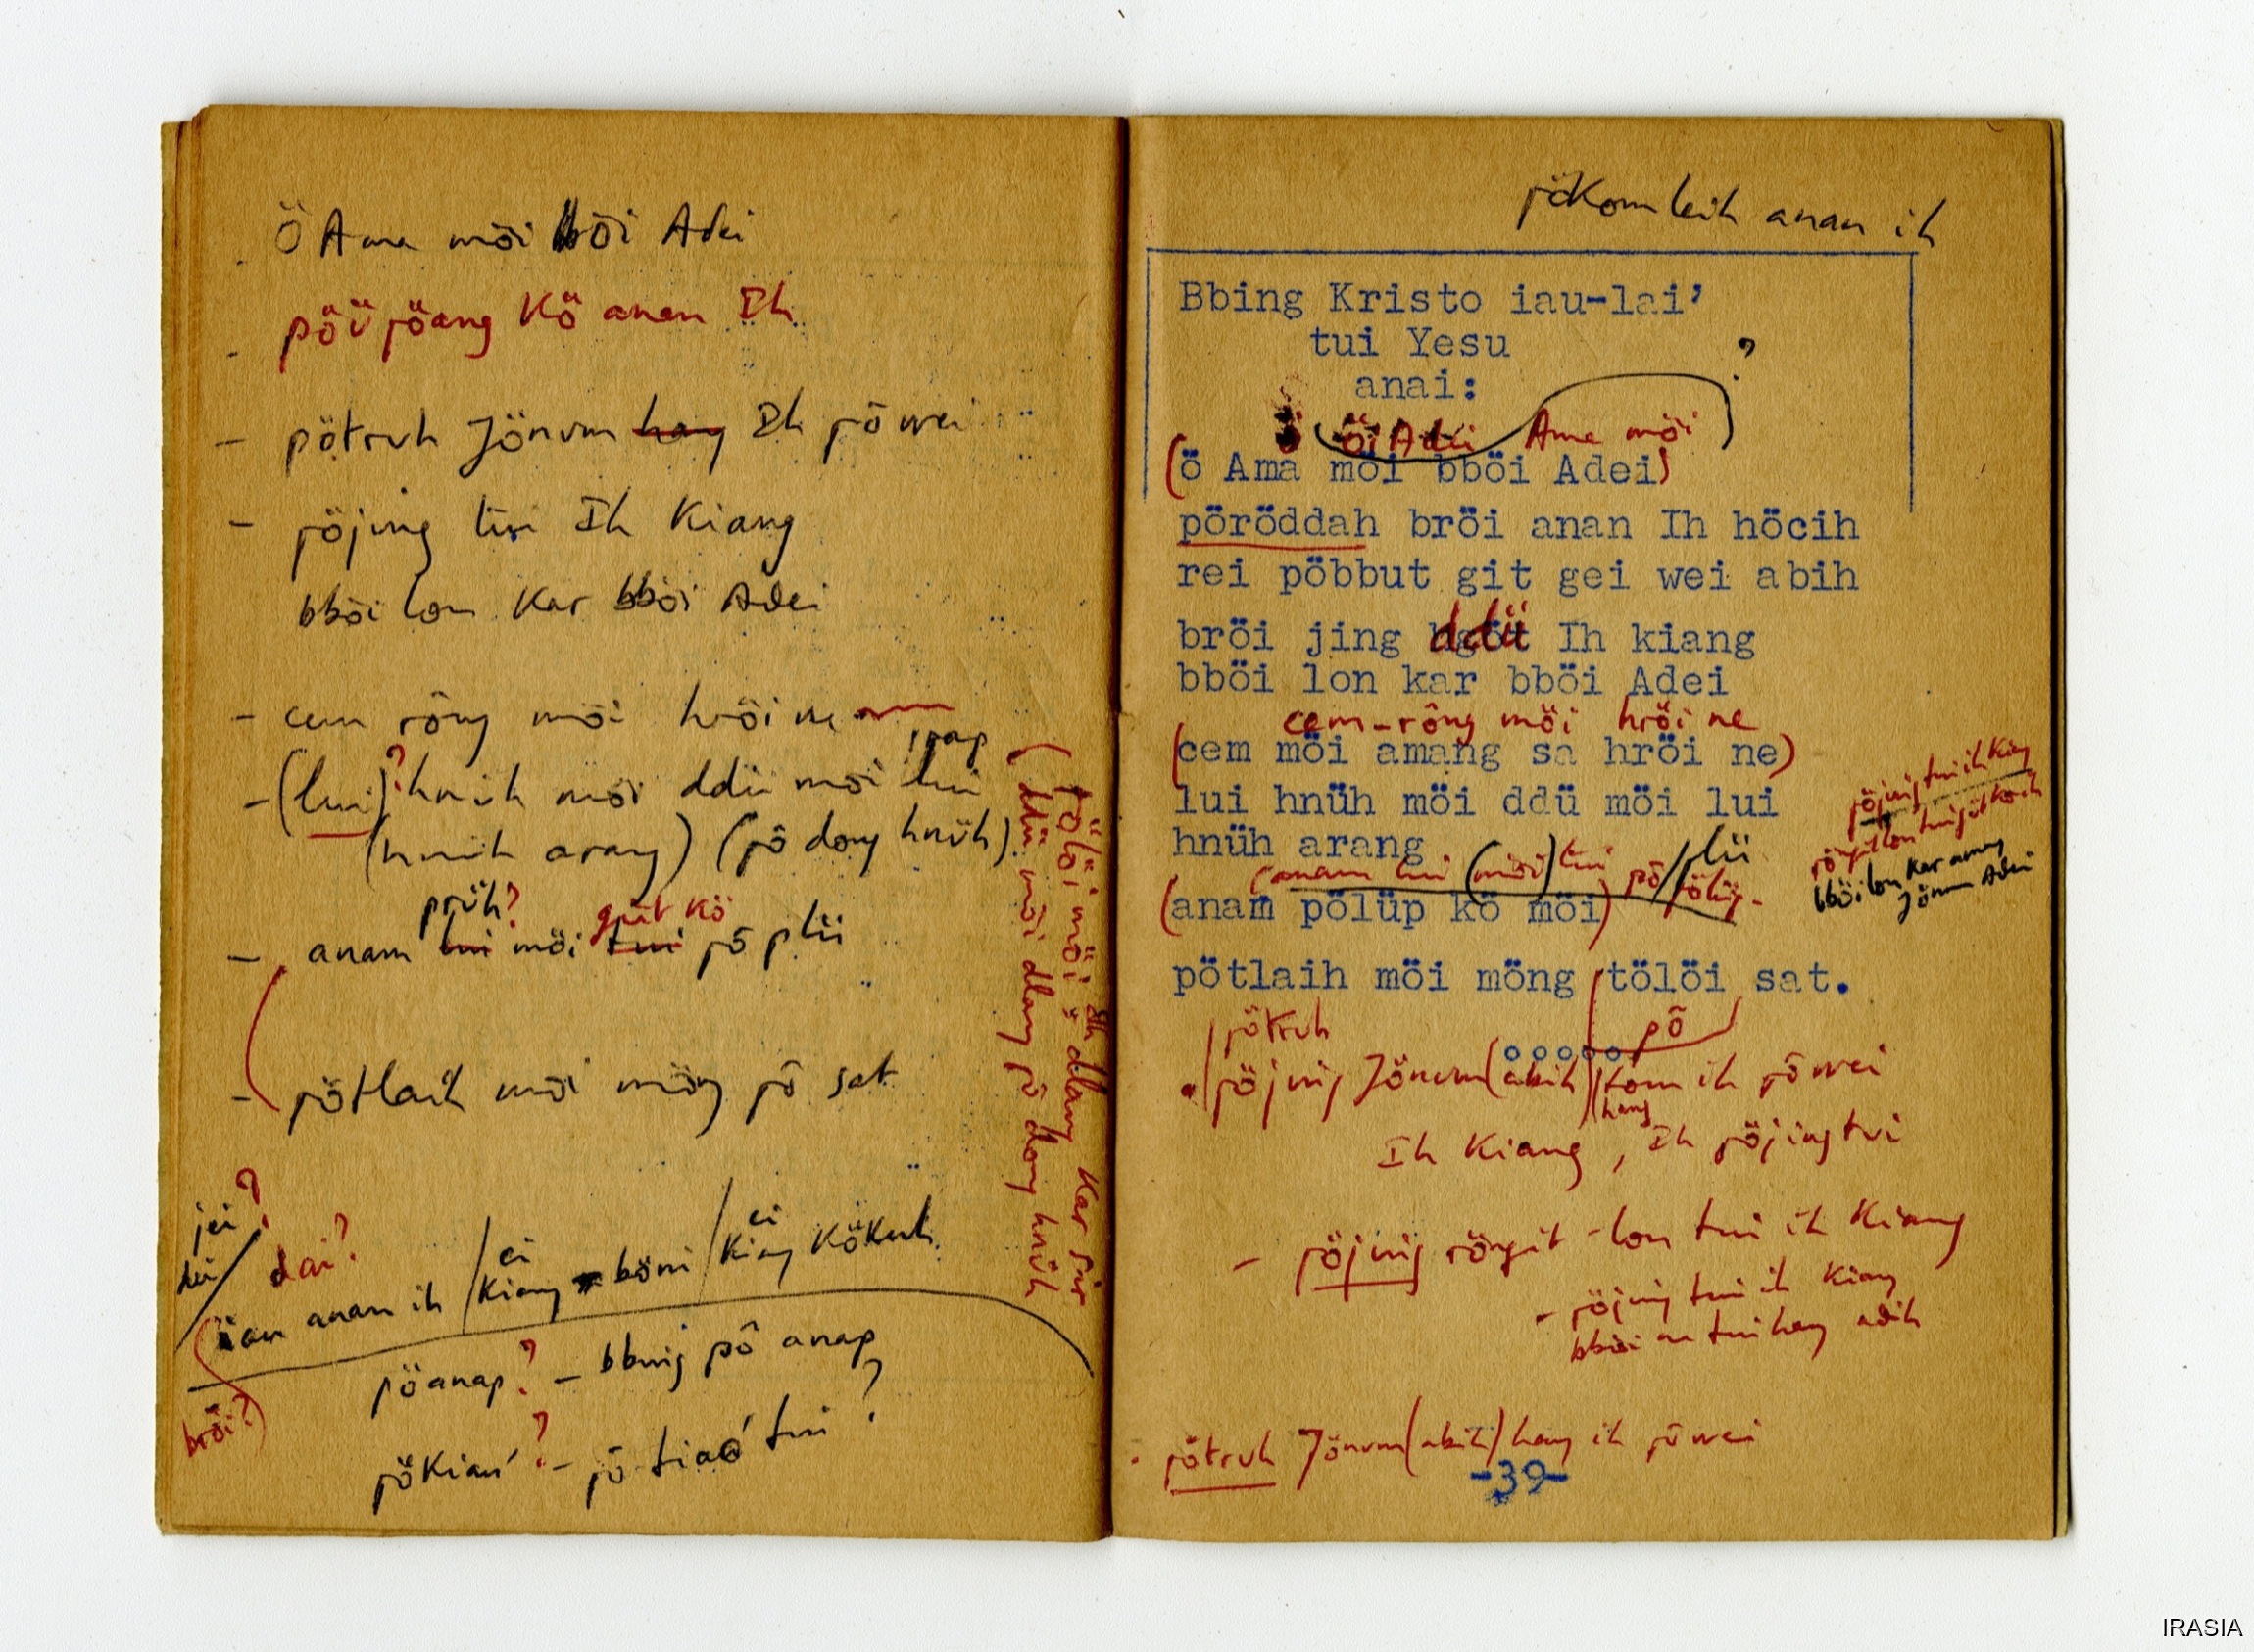 Ö Ama möi bböi Adei
pöjöang Kö anan Ih
- pötruh Jönum hang Ih pô wei
- pöjing tui Ih Kiang
bböi lon Kar bböi Adei
- cem rông möi hröi ne
anap
- (lui)? hnüh möi ddü möi lui
(hnüh arang) (pô dong hnüh)
prüh? güt kö
- anam lui möi tui pô plü
- pötlaih möi möng pô sat
(tölöi möi Ih dlang Kar pir
(ddü möi dlang pô dong hnüh
jei?
dai?
ei ei
anan ih / Kiang böni / Kiang Kökuh
pöanap? - bbing pô anap
bröi?
pöKiau'? - pô tiaó tui?
pökom leih anan ih
Bbing Kristo iau-lai'
tui Yesu
anai:
?
öi Adei Ama möi
(ö Ama möi bböi Adei)
pöröddah bröi anan Ih höcih
rei pöbbut git gei wei abih
ddü
bröi jing Ih kiang
bböi lon kar bböi Adei
cem-rông möi hröi ne
(cem möi amang sa hröi ne)
lui hnüh möi ddü möi lui
hnüh arang
(anam lui (möi) tui pô / lü
(anam pölüp kö möi)
pöjing tui ih Kiang
bböi lon Kar anang
Jönum Adei
pötlaih möi möng tölöi sat.
pötruh
pô
pöjing Jönum (abih) kom ih pô wei
hang
Ih Kiang, Ih pöjing tui
- pöjing röngit - lon tui ih Kiang
- pöjing tui ih Kiang
pötruh Jönum (abih) hang ih pô wei
-39-
IRASIA